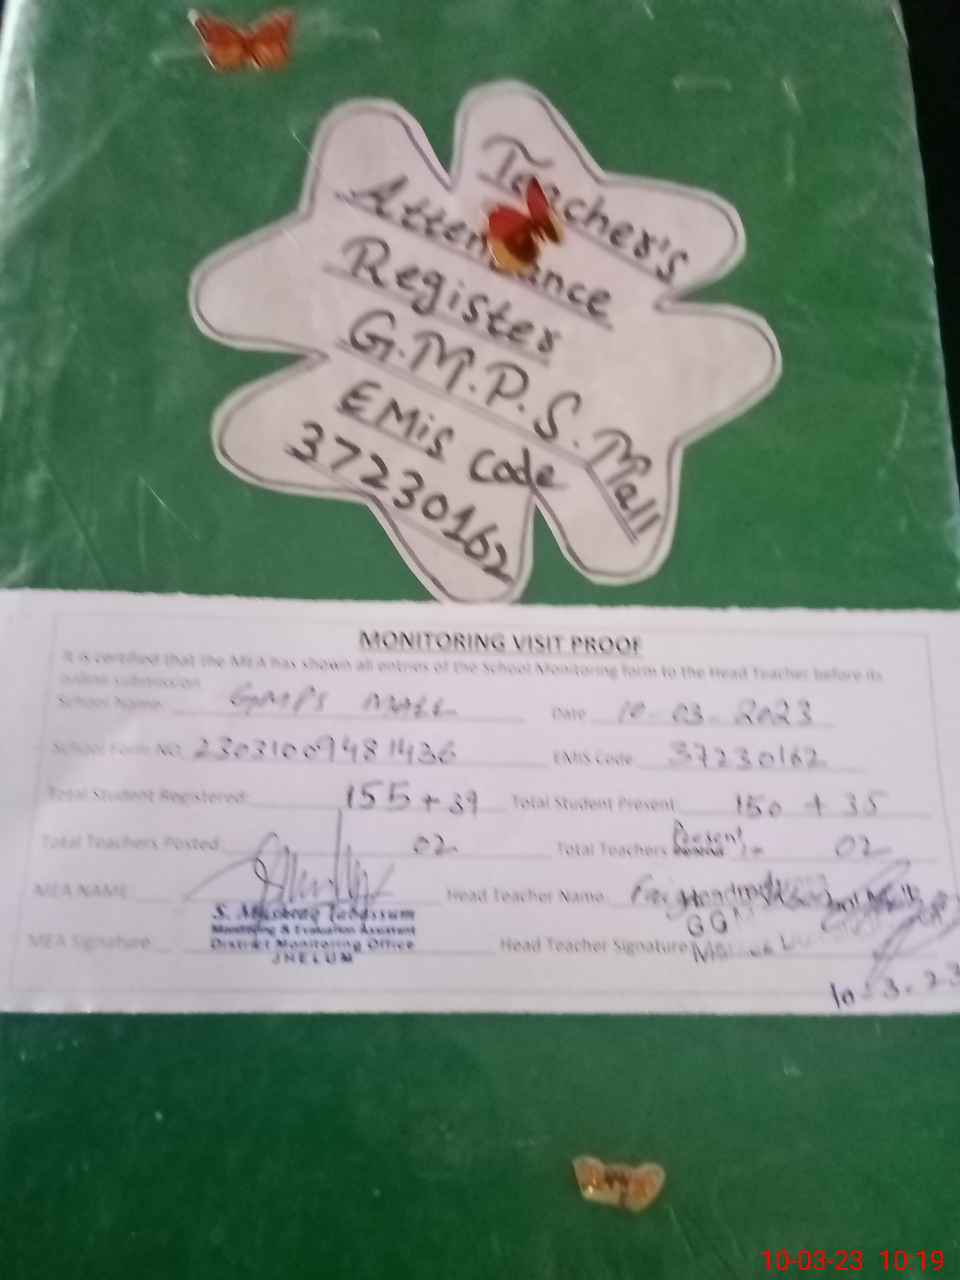 Teacher's
Attendance
Register
G.M.P.S. Mall
EMis Code
37230162
MONITORING VISIT PROOF
It is certified that the MEA has shown all entries of the School Monitoring form to the Head Teacher before its
online submission
School Name: GMPS MALL Date 10-03-2023
School Form NO. 23031009481436 EMIS Code 37230162
Total Student Registered: 155 + 39 Total Student Present 150 + 35
Total Teachers Posted 02 Total Teachers Present 02
MEA NAME Head Teacher Name
S. Tabassum
Monitoring & Evaluation Assistant
District Monitoring Office
JHELUM
MEA Signature: Head Teacher Signature
10-3-23
10-03-23 10:19